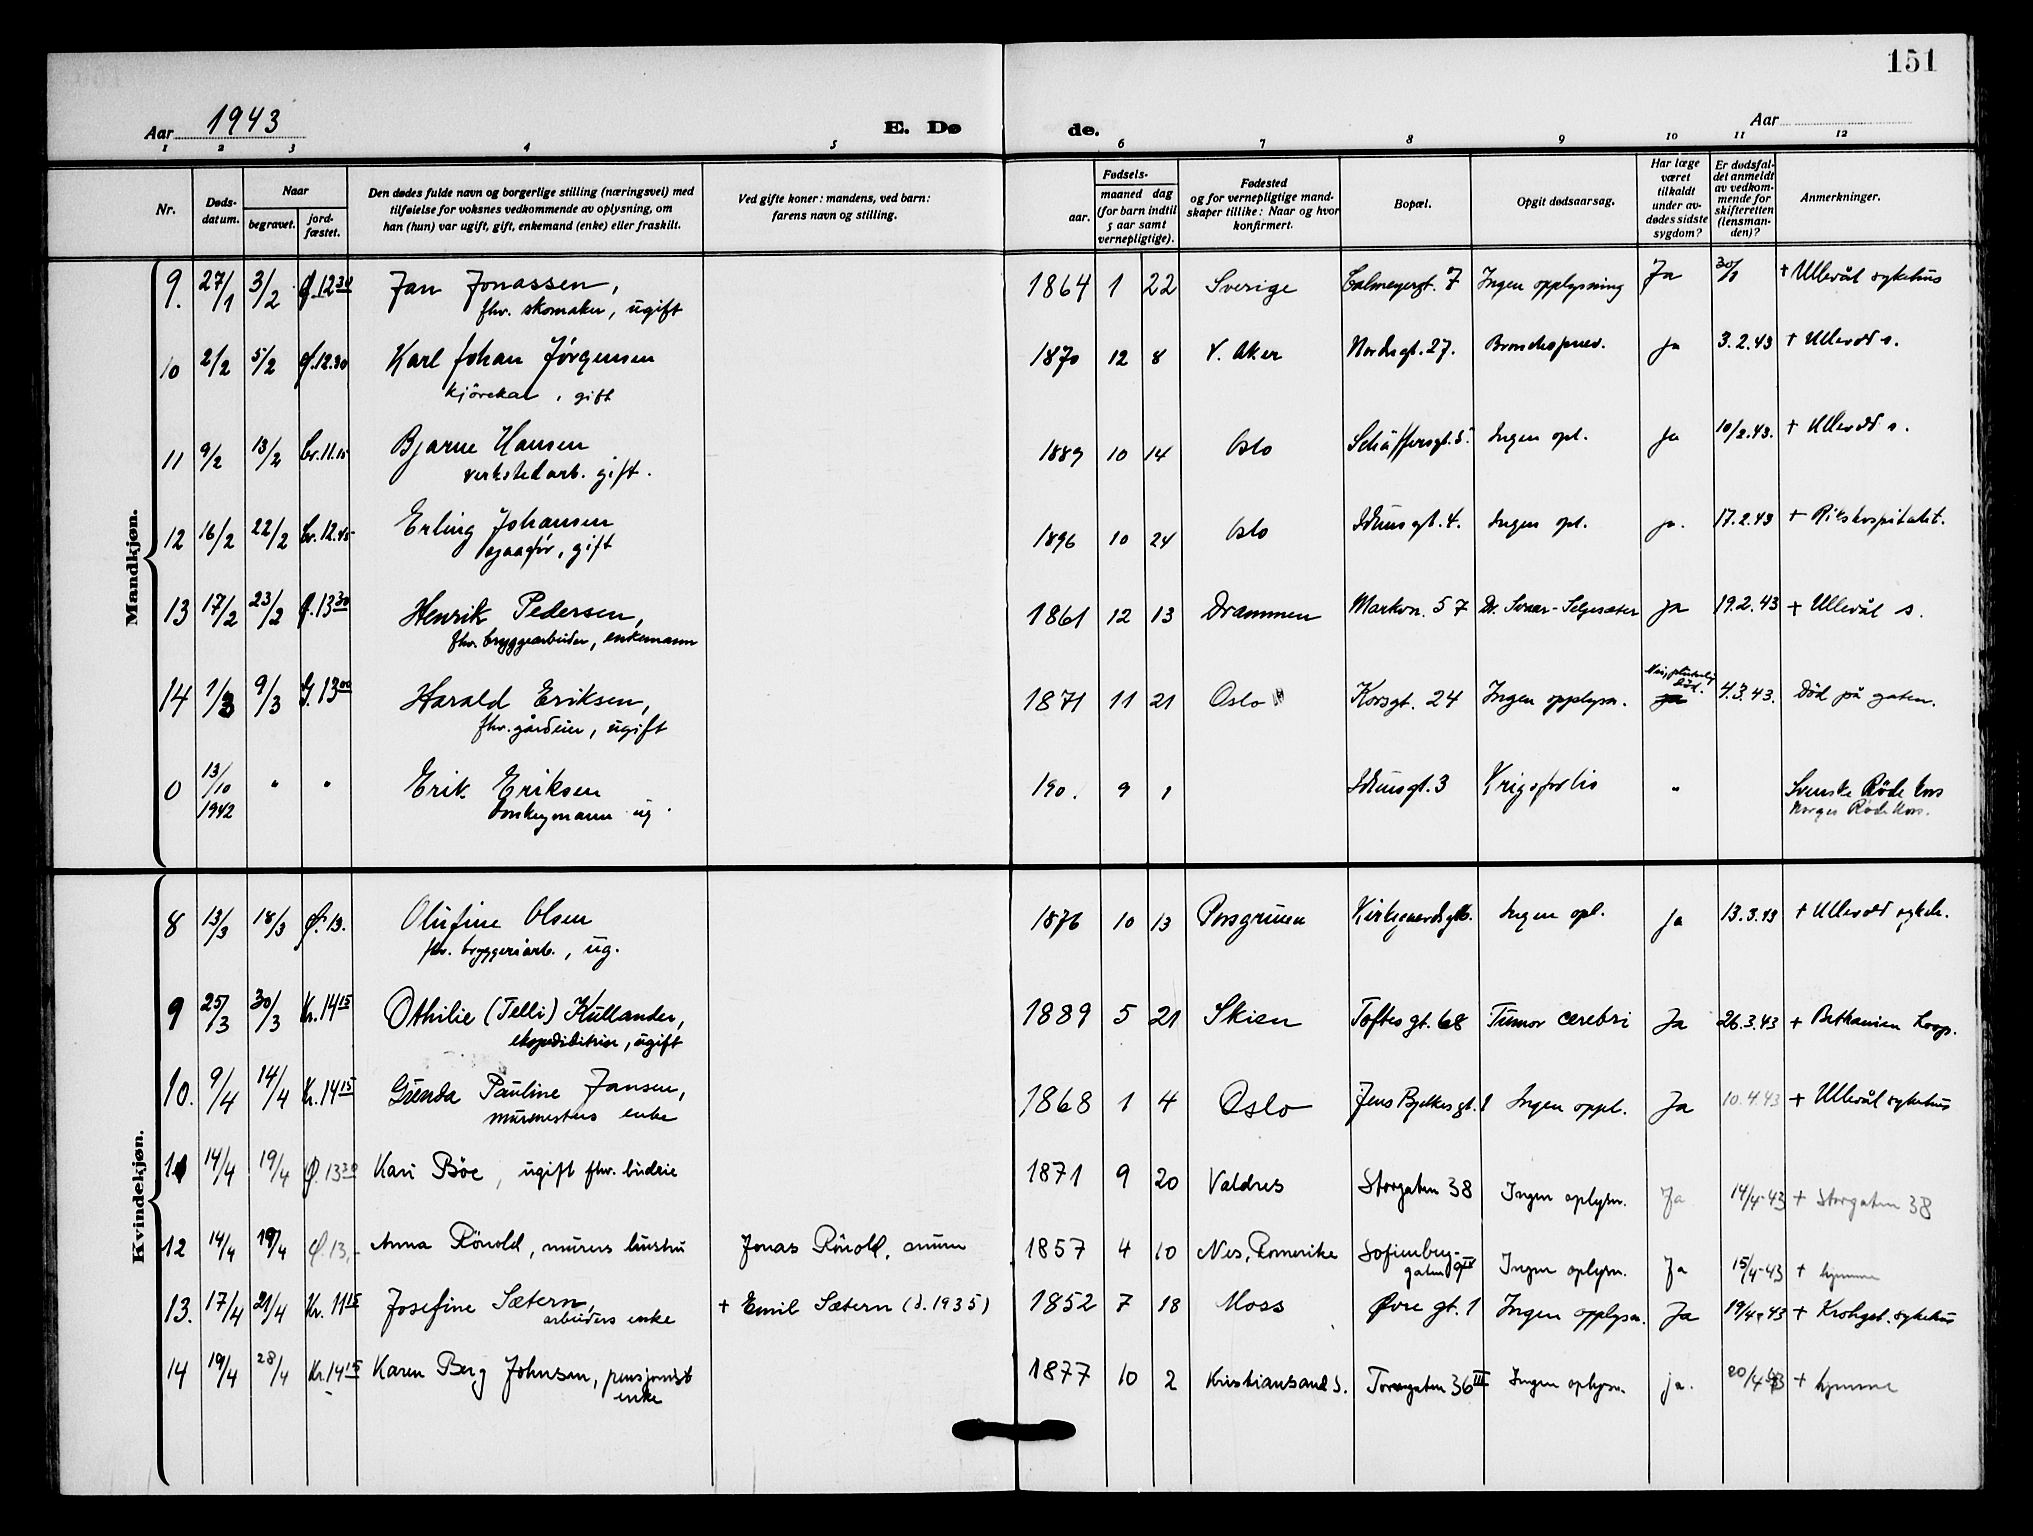 151
Aar 1943
E. Dø
de.
Aar
1 2 3 4 5 6 7 8 9 10 11 12
Nr.
Døds-
datum.
Naar
begravet.
jord-
fæstet.
Den dødes fulde navn og borgerlige stilling (næringsvei) med
tilføielse for voksnes vedkommende av oplysning, om
han (hun) var ugift, gift, enkemand (enke) eller fraskilt.
Ved gifte koner: mandens, ved barn:
farens navn og stilling.
Fødsels-
aar.
maaned dag
(for barn indtil
5 aar samt
vernepligtige).
Fødested
og for vernepligtige mand-
skaper tillike: Naar og hvor
konfirmert.
Bopæl.
Opgit dødsaarsag.
Har læge
været
tilkaldt
under av-
dødes sidste
sygdom?
Er dødsfal-
det anmeldt
av vedkom-
mende for
skifteretten
(lensman-
den)?
Anmerkninger.
Mandkjøn.
9. 27/1 3/2 Ø.12 30 Jan Jonassen, 1864 1 22 Sverige Calmeyergt. 7 Ingen opplysning Ja 30/1 + Ullevål sykehus
fhv. skomaker, ugift
10 2/2 5/2 Ø.12.30 Karl Johan Jørgensen 1870 12 8 V. Aker Nordregt. 27. Bronchopneu. ja 3.2.43 + Ullevål s.
kjørekar, gift
11 9/2 13/2 Kr.11.15 Bjarne Hansen 1889 10 14 Oslo Schäffersgt. 5. Ingen opl. ja 10/2.43. + Ullevål s.
verkstedarb. gift.
12 16/2 22/2 Kr.12.45 Erling Johansen 1896 10 24 Oslo Idunsgt. 4. Ingen opl. ja. 17.2.43 + Rikshospitalet.
sjaafør, gift
13 17/2 23/2 Ø.13 30 Henrik Pedersen, 1861 12 13 Drammen Markvn. 57 Dr. Svaar-Seljesæter ja 19.2.43 + Ullevål s.
fhv. bryggearbeider, enkemann
14 1/3 9/3 G. 13 00 Harald Eriksen, 1871 11 21 Oslo Korsgt. 24 Ingen opplysn. Nei, plutselig død. ja 4.3.43. Død på gaten.
fhv. gårdeier, ugift
0 13/10 1942 " " Erik Eriksen 190. 9 1 Idunsgt. 3 Krigsforlis " Svenske Røde Kors
ug. Norges Røde Kors.
Kvindekjøn.
8 13/3 18/3 Ø.13. Olufine Olsen 1876 10 13 Porsgrunn Ingen opl. ja 13.3.43 + Ullevål sykeh.
fhv. bryggeriarb., ug.
9 25/3 30/3 Kr.14 15 Othilie (Telli) Kullander, 1889 5 21 Skien Toftes gt. 68 Tumor cerebri Ja 26.3.43 + Bethanien hosp.
ekspeditrise, ugift
10. 9/4 14/4 Kr.14 15 Gunda Pauline Jansen, 1868 1 4 Oslo Jens Bjelkes gt. 1 Ingen oppl. Ja 10.4.43 + Ullevål sykehus
murmesters enke
11 14/4 19/4 Ø.13 30 Kari Bøe, ugift fhv. budeie 1871 9 20 Valdres Storgaten 38 Ingen oplysn. Ja 14/4-43 + Storgaten 38
12 14/4 19/4 Ø.13,- Anna Rönold, murers hustru Jonas Rönold, murer 1857 4 10 Nes, Romerike Sofienberg-
gaten 9 IV Ingen oplysn. Ja 15/4-43 + hjemme
13. 17/4 21/4 Kr. 11 15 Josefine Sætern, + Emil Sætern (d. 1935) 1852 7 18 Moss Øvre gt. 1 Ingen opplysn. Ja 19/4-43 + Krohgst. sykehus
arbeiders enke
14 19/4 28/4 Kr.14 15 Karen Berg Johnsen, pensjonist 1877 10 2 Kristiansand S. Torvgaten 36 III Ingen oplysn. ja. 20/4 43 + hjemme
enke